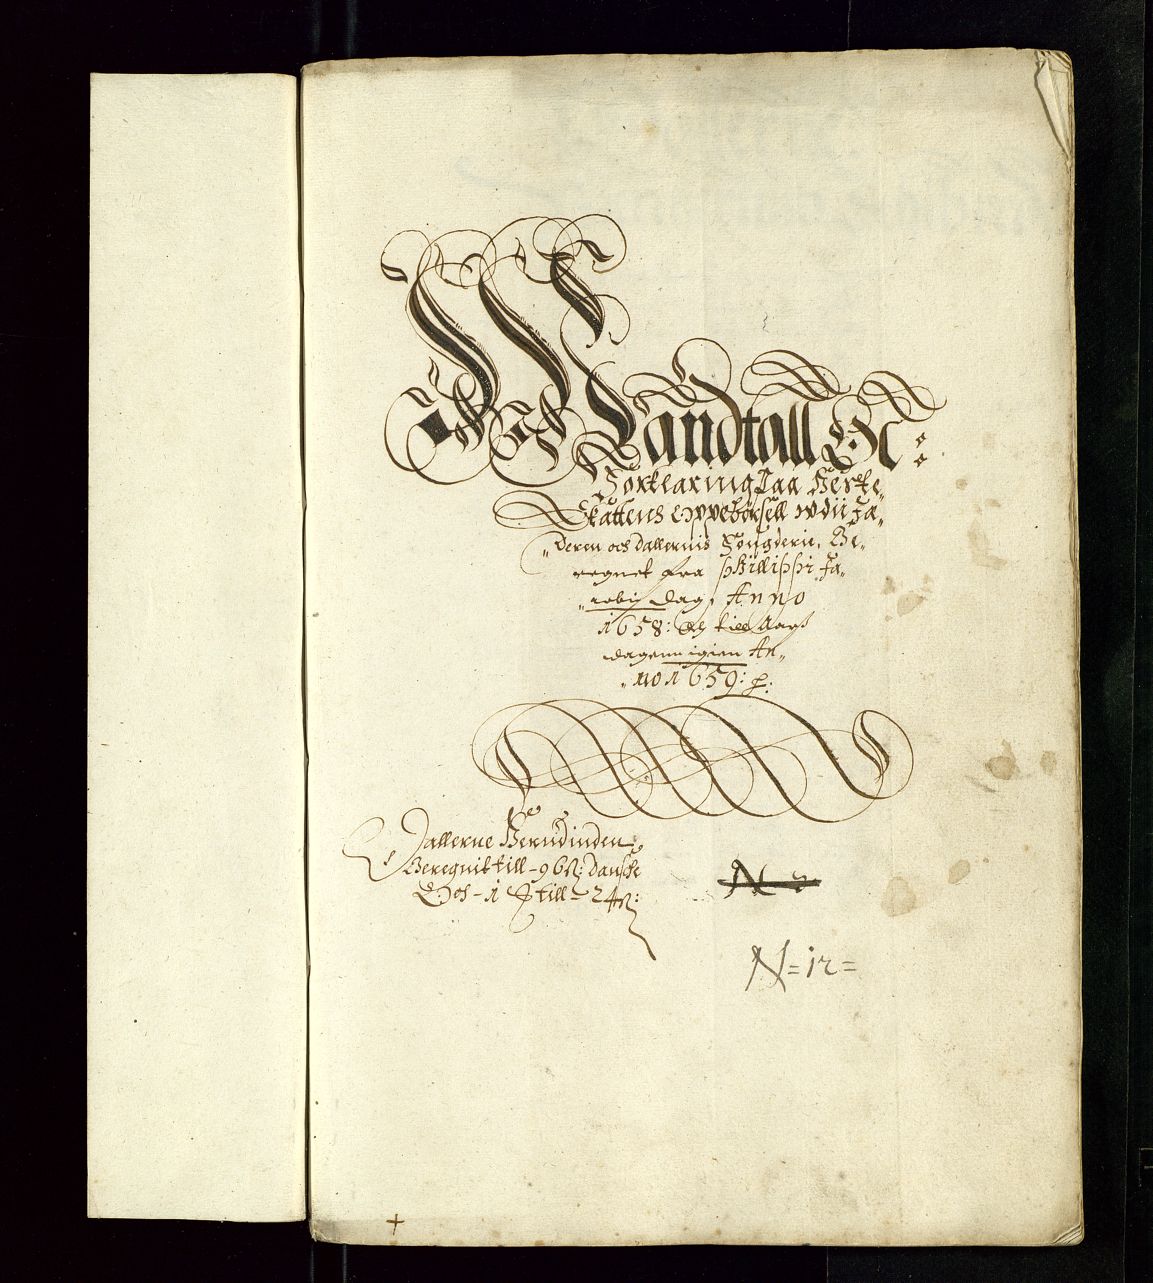 Mandtall Oc
Forklaring Paa Herre
Skattens oppebörsell wdii Ja„
„deren och dallernis Fougderie, Be„
regnet fra Phillippi Ja„
„cobij Dag, Anno
1658: Och till Aars
dagenn igien An„
„no 1659:
Dallerne Herudinden
Beregnit till - 96 ß: danske
Och - 1 till - 24 ß:
N
N = 12 =